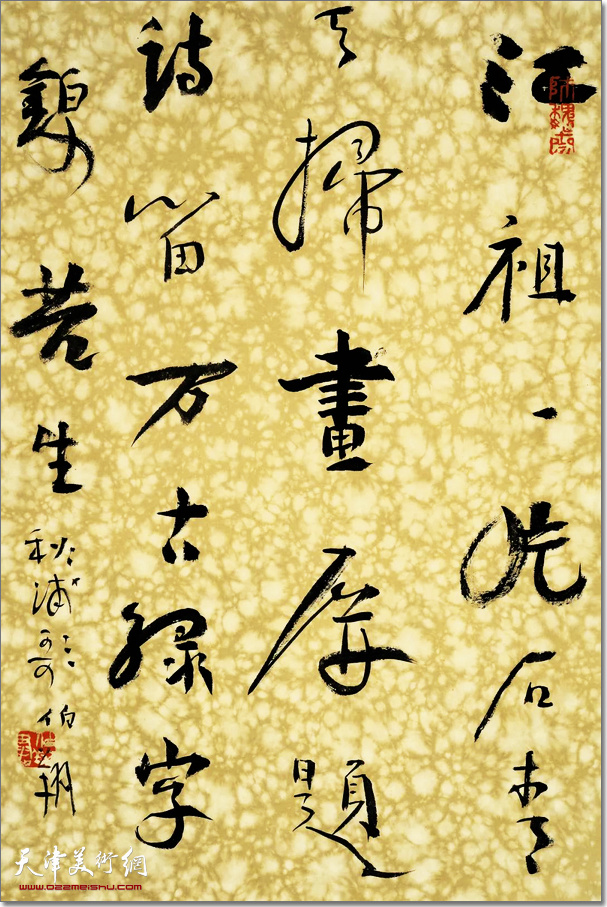 江祖一片石青
天掃畫屏題
詩留万古緑字
錦苔生
秋浦歌 伯翔
天津美術網
www.022meishu.com